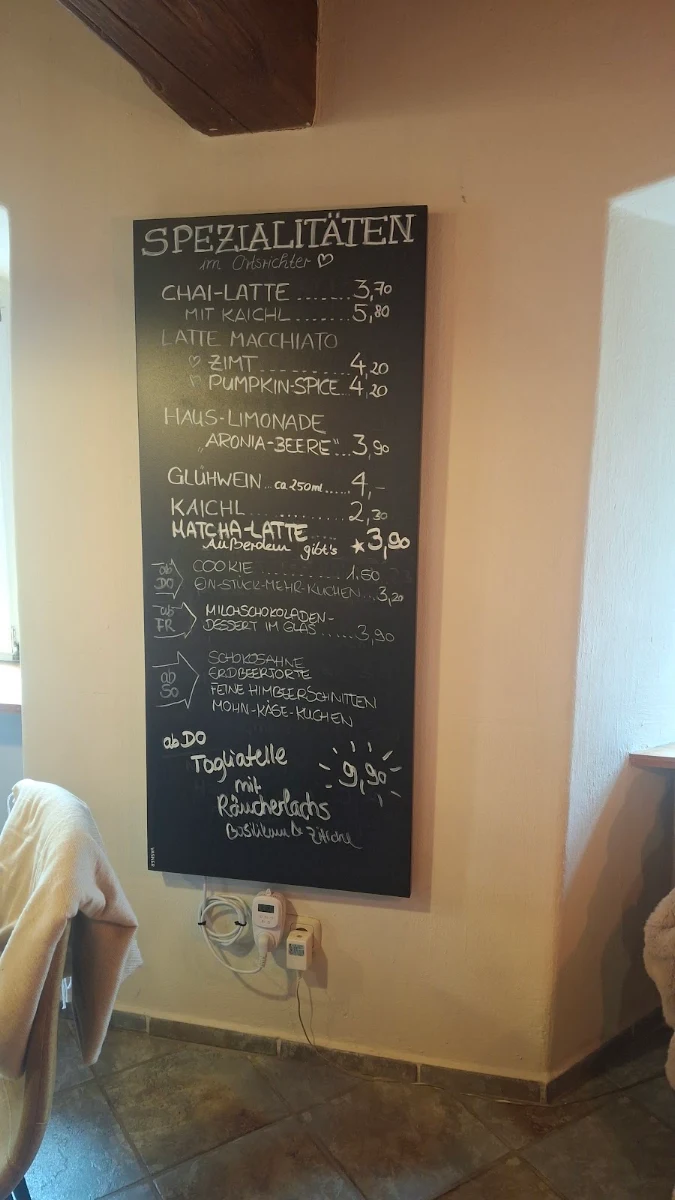 SPEZIALITÄTEN
im Ortsrichter ♡
CHAI-LATTE ....... 3,70
MIT KAICHL ....... 5,80
LATTE MACCHIATO
♡ ZIMT ............ 4,20
♡ PUMPKIN-SPICE ... 4,20
HAUS-LIMONADE
„ARONIA-BEERE“ ... 3,90
GLÜHWEIN ... ca 250ml ...... 4,-
KAICHL ............ 2,30
MATCHA-LATTE .... ★3,90
Außerdem gibt's
ab DO
COOKIE ............ 1.60
EIN-STÜCK-MEHR-KUCHEN ... 3,20
ab FR
MILCHSCHOKOLADEN-
DESSERT IM GLAS ...... 3,90
ab SO
SCHOKOSAHNE
ERDBEERTORTE
FEINE HIMBEERSCHNITTEN
MOHN-KÄSE-KUCHEN
ab DO
Tagliatelle 9,90
mit
Räucherlachs
Basilikum & Zitrone